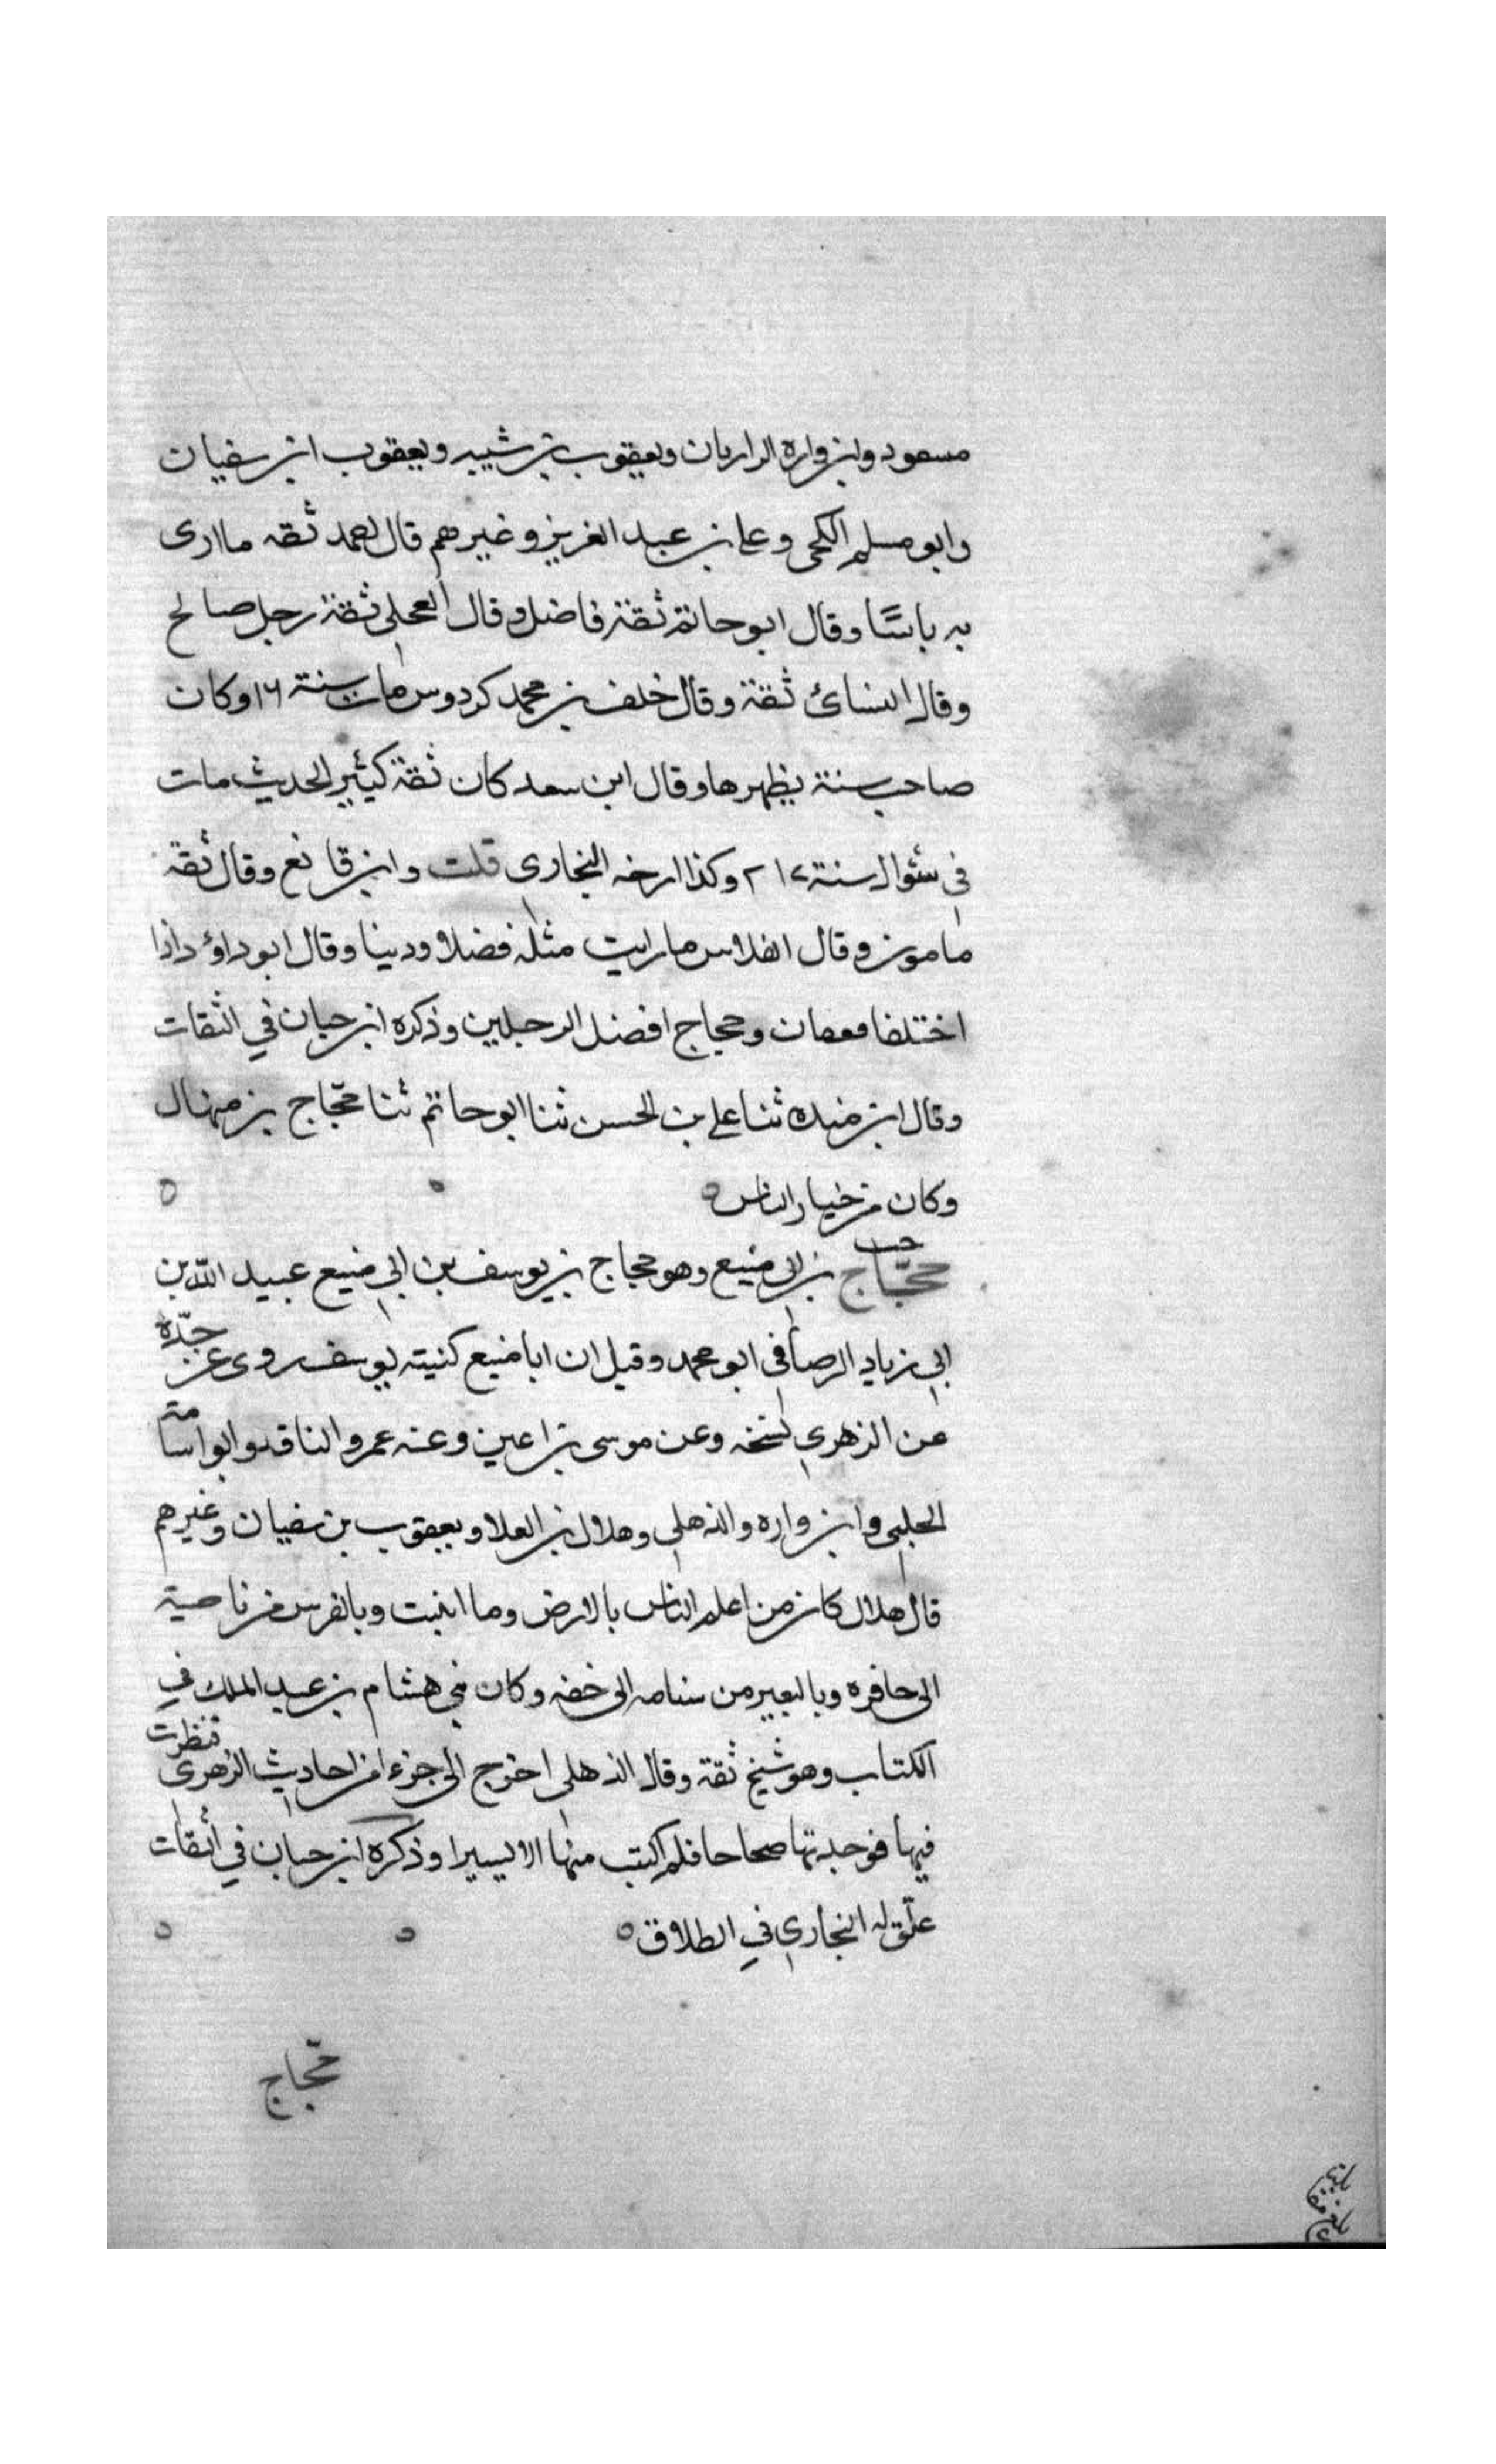 مسعود وابن واره الرازيان ويعقوب بن شيبه ويعقوب ابن سفيان
وابو مسلم الكجى وعلى بن عبد العزيز وغيرهم قال احمد ثقه ما ارى
به باسًا وقال ابو حاتم ثقة فاضل وقال العجلى ثقة رجل صالح
وقال النسائ ثقة وقال خلف بن محمد كردوس مات سنة ٢١٦ وكان
صاحب سنة يظهرها وقال ابن سعد كان ثقة كثير الحديث مات
فى شوال سنة ٢١٧ وكذا ارخه البخارى قلت وابن قانع وقال ثقة
مامون وقال الفلاس ما رايت مثله فضلا ودينا وقال ابو داؤد اذا
اختلفا فعفان وحجاج افضل الرجلين وذكره ابن حبان في الثقات
وقال ابن منده ثنا على بن الحسن ثنا ابو حاتم ثنا حجّاج بن منهال
وكان من خيار الناس ٥
حجّاج بن ابى منيع وهو حجاج بن يوسف بن ابي منيع عبيد الله بن
ابي زياد الرصافى ابو محمد وقيل ان ابا منيع كنيته يوسف روى عن جدّه
عن الزهري نسخه وعن موسى بن اعين وعنه عمرو الناقد وابو اسامة
الحلبى وابن واره والذهلى وهلال بن العلا ويعقوب بن سفيان وغيرهم
قال هلال كان من اعلم الناس بالارض وما انبت وبالفرس من ناصية
الى حافره وبالبعير من سنامه الى خفه وكان مع بني هشام بن عبد الملك في
الكتاب وهو شيخ ثقة وقال الذهلى اخرج الى جزء من احاديث الزهرى فنظرت
فيها فوجدتها صحاحا فلم اكتب منها الا يسيرا وذكره ابن حبان في الثقات
علّق له البخاري في الطلاق ٥
حجّاج